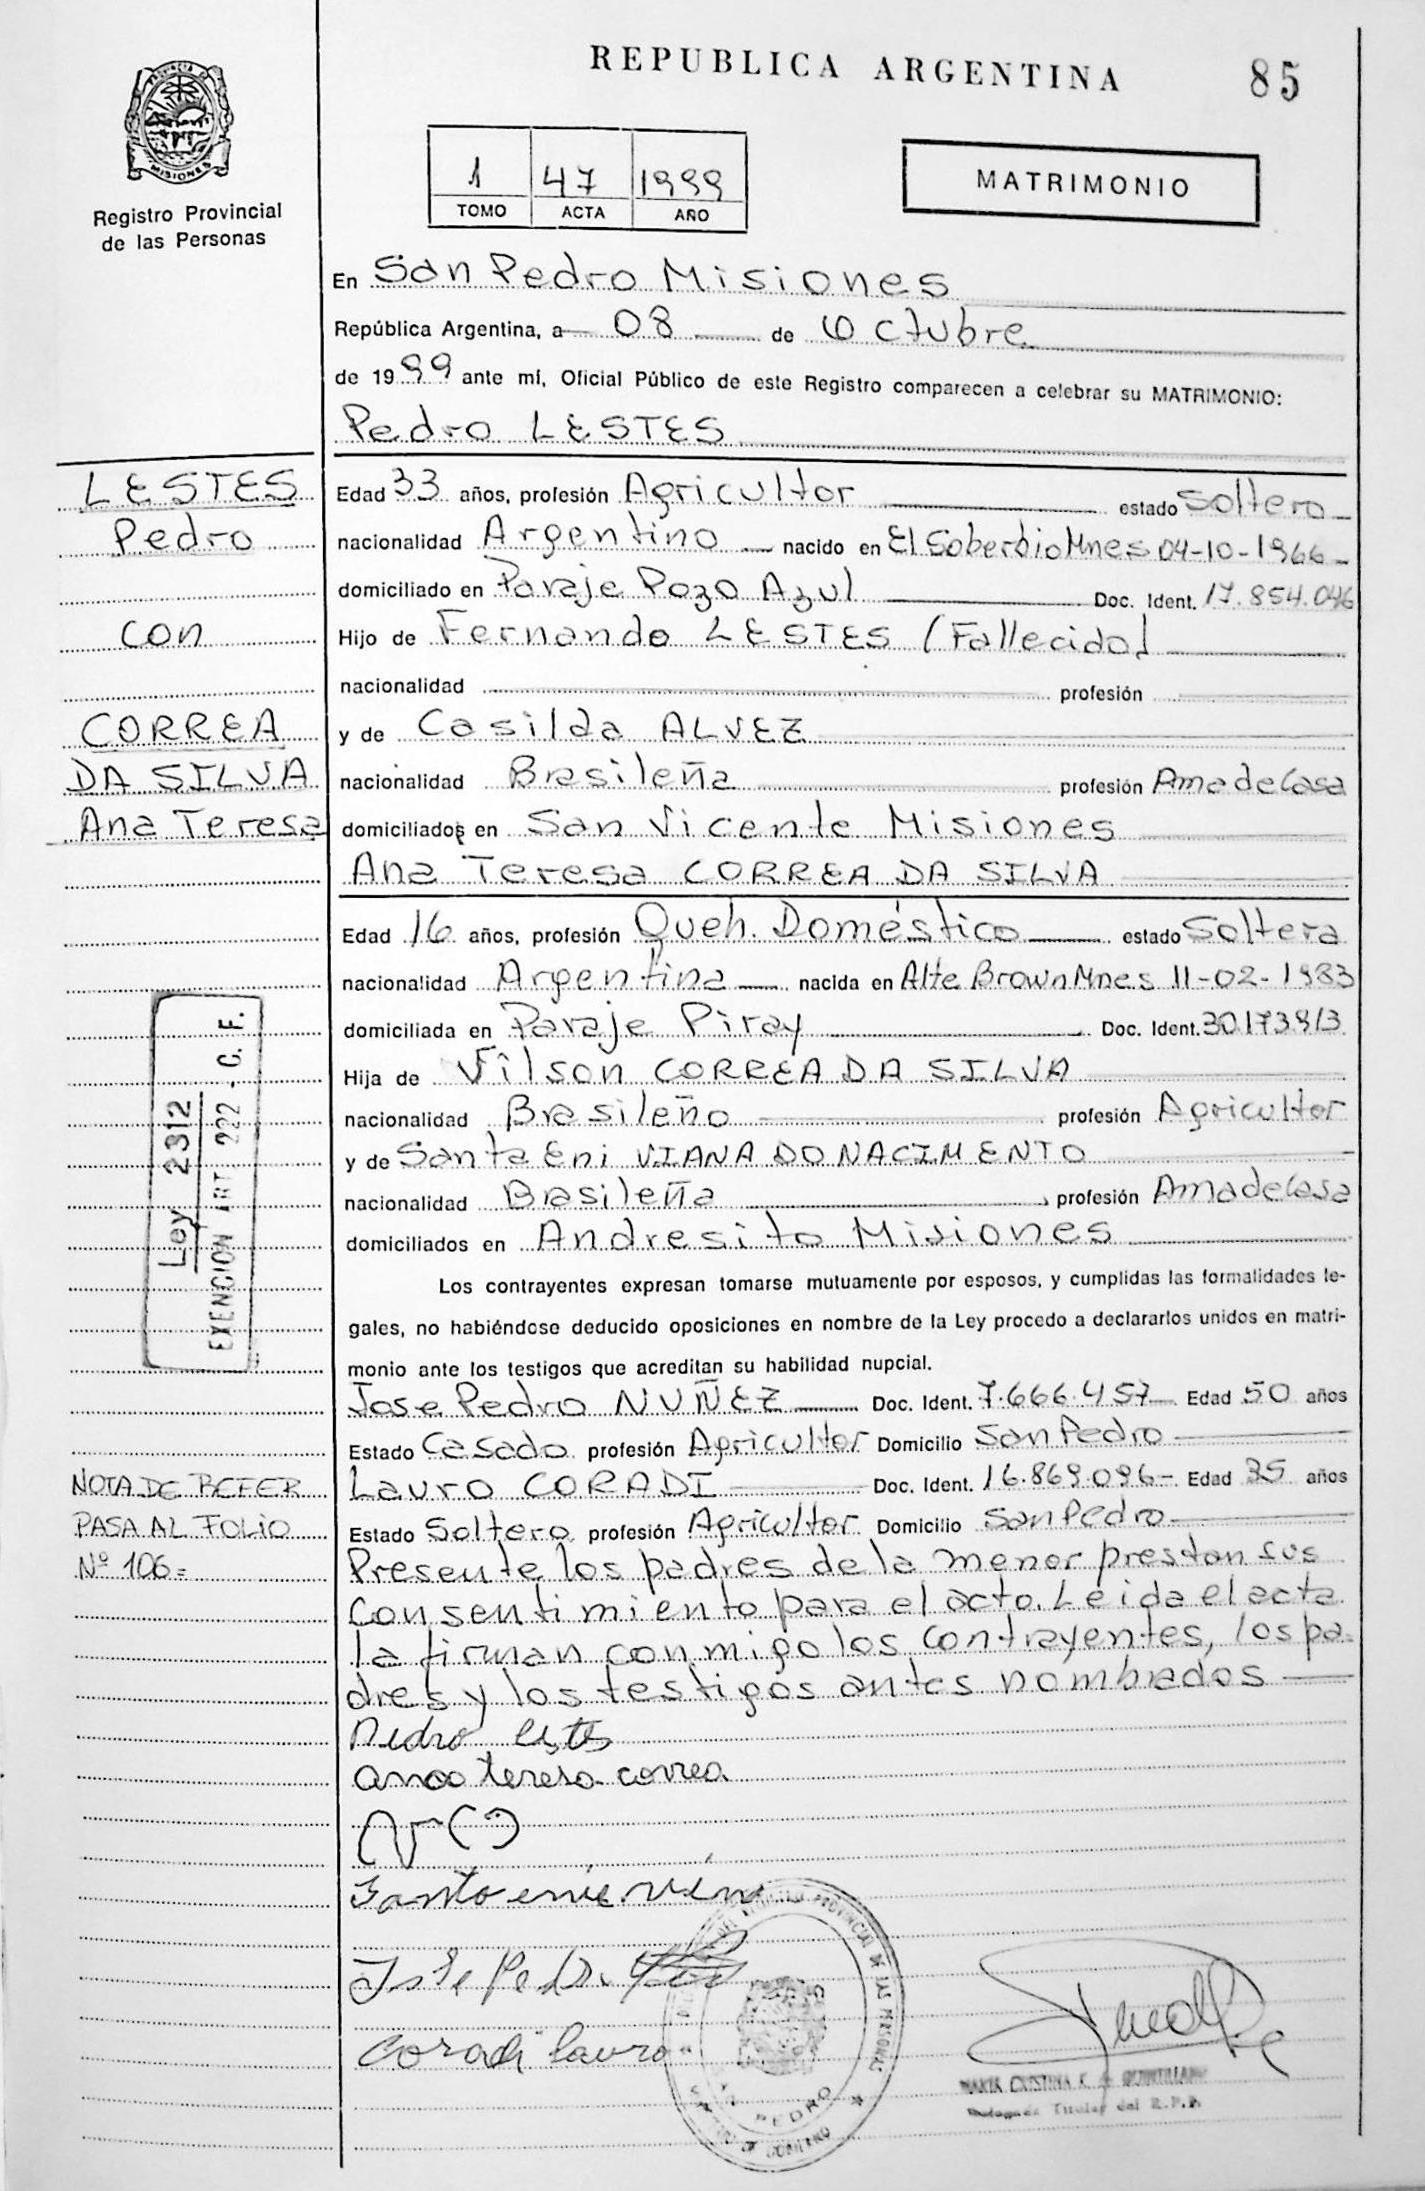 REPUBLICA ARGENTINA
85
PROVINCIA DE
MISIONES
Registro Provincial
de las Personas
1 47 1999
TOMO ACTA AÑO
MATRIMONIO
En San Pedro Misiones
República Argentina, a 08 de Octubre
de 1999 ante mí, Oficial Público de este Registro comparecen a celebrar su MATRIMONIO:
Pedro LESTES
LESTES
Pedro
con
CORREA
DA SILVA
Ana Teresa
Edad 33 años, profesión Agricultor estado Soltero
nacionalidad Argentino nacido en El Soberbio Mnes 04-10-1966
domiciliado en Paraje Pozo Azul Doc. Ident. 17.854.046
Hijo de Fernando LESTES (Fallecido)
nacionalidad profesión
y de Casilda ALVEZ
nacionalidad Brasileña profesión Ama de Casa
domiciliados en San Vicente Misiones
Ana Teresa CORREA DA SILVA
Edad 16 años, profesión Queh. Doméstico estado Soltera
nacionalidad Argentina nacida en Alte Brown Mnes 11-02-1983
domiciliada en Paraje Piray Doc. Ident.
Hija de Vilson CORREA DA SILVA
nacionalidad Brasileño profesión Agricultor
y de Santa Eni VIANA DO NACIMENTO
nacionalidad Brasileña profesión Ama de Casa
domiciliados en Andresito Misiones
Ley 2312
EXENCION ART. 222 - C. F.
Los contrayentes expresan tomarse mutuamente por esposos, y cumplidas las formalidades le-
gales, no habiéndose deducido oposiciones en nombre de la Ley procedo a declararlos unidos en matri-
monio ante los testigos que acreditan su habilidad nupcial.
Jose Pedro NUÑEZ Doc. Ident. 7.666.457 Edad 50 años
Estado Casado profesión Agricultor Domicilio San Pedro
Lauro CORADI Doc. Ident. 16.869.096 Edad 35 años
Estado Soltero profesión Agricultor Domicilio San Pedro
NOTA DE REFER
PASA AL FOLIO
Nº 106=
Presente los padres de la menor prestan sus
consentimiento para el acto. Leida el acta
la firman conmigo los contrayentes, los pa-
dres y los testigos antes nombrados
Pedro Lestes
Ana teresa correa
Jose Pedro
Coradi Lauro
REGISTRO PROVINCIAL DE LAS PERSONAS
SAN PEDRO
MARIA CRISTINA K. de QUINTILLAN
Delegada Titular del R.P.P.